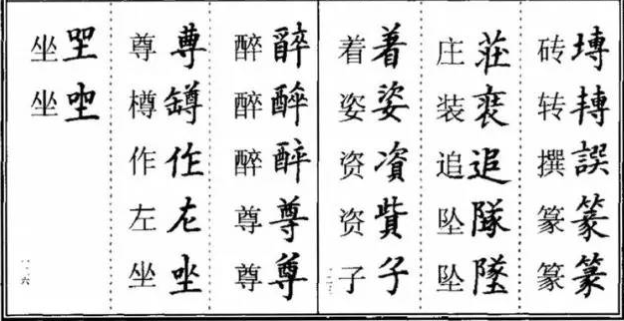 塼轉譔篆篆
砖转撰篆篆
莊裝追隊墜
庄装追坠坠
着姿資貲子
着姿资资子
醉醉尊尊
醉醉醉尊尊
尊罇作左坐
尊樽作左坐
坐坐